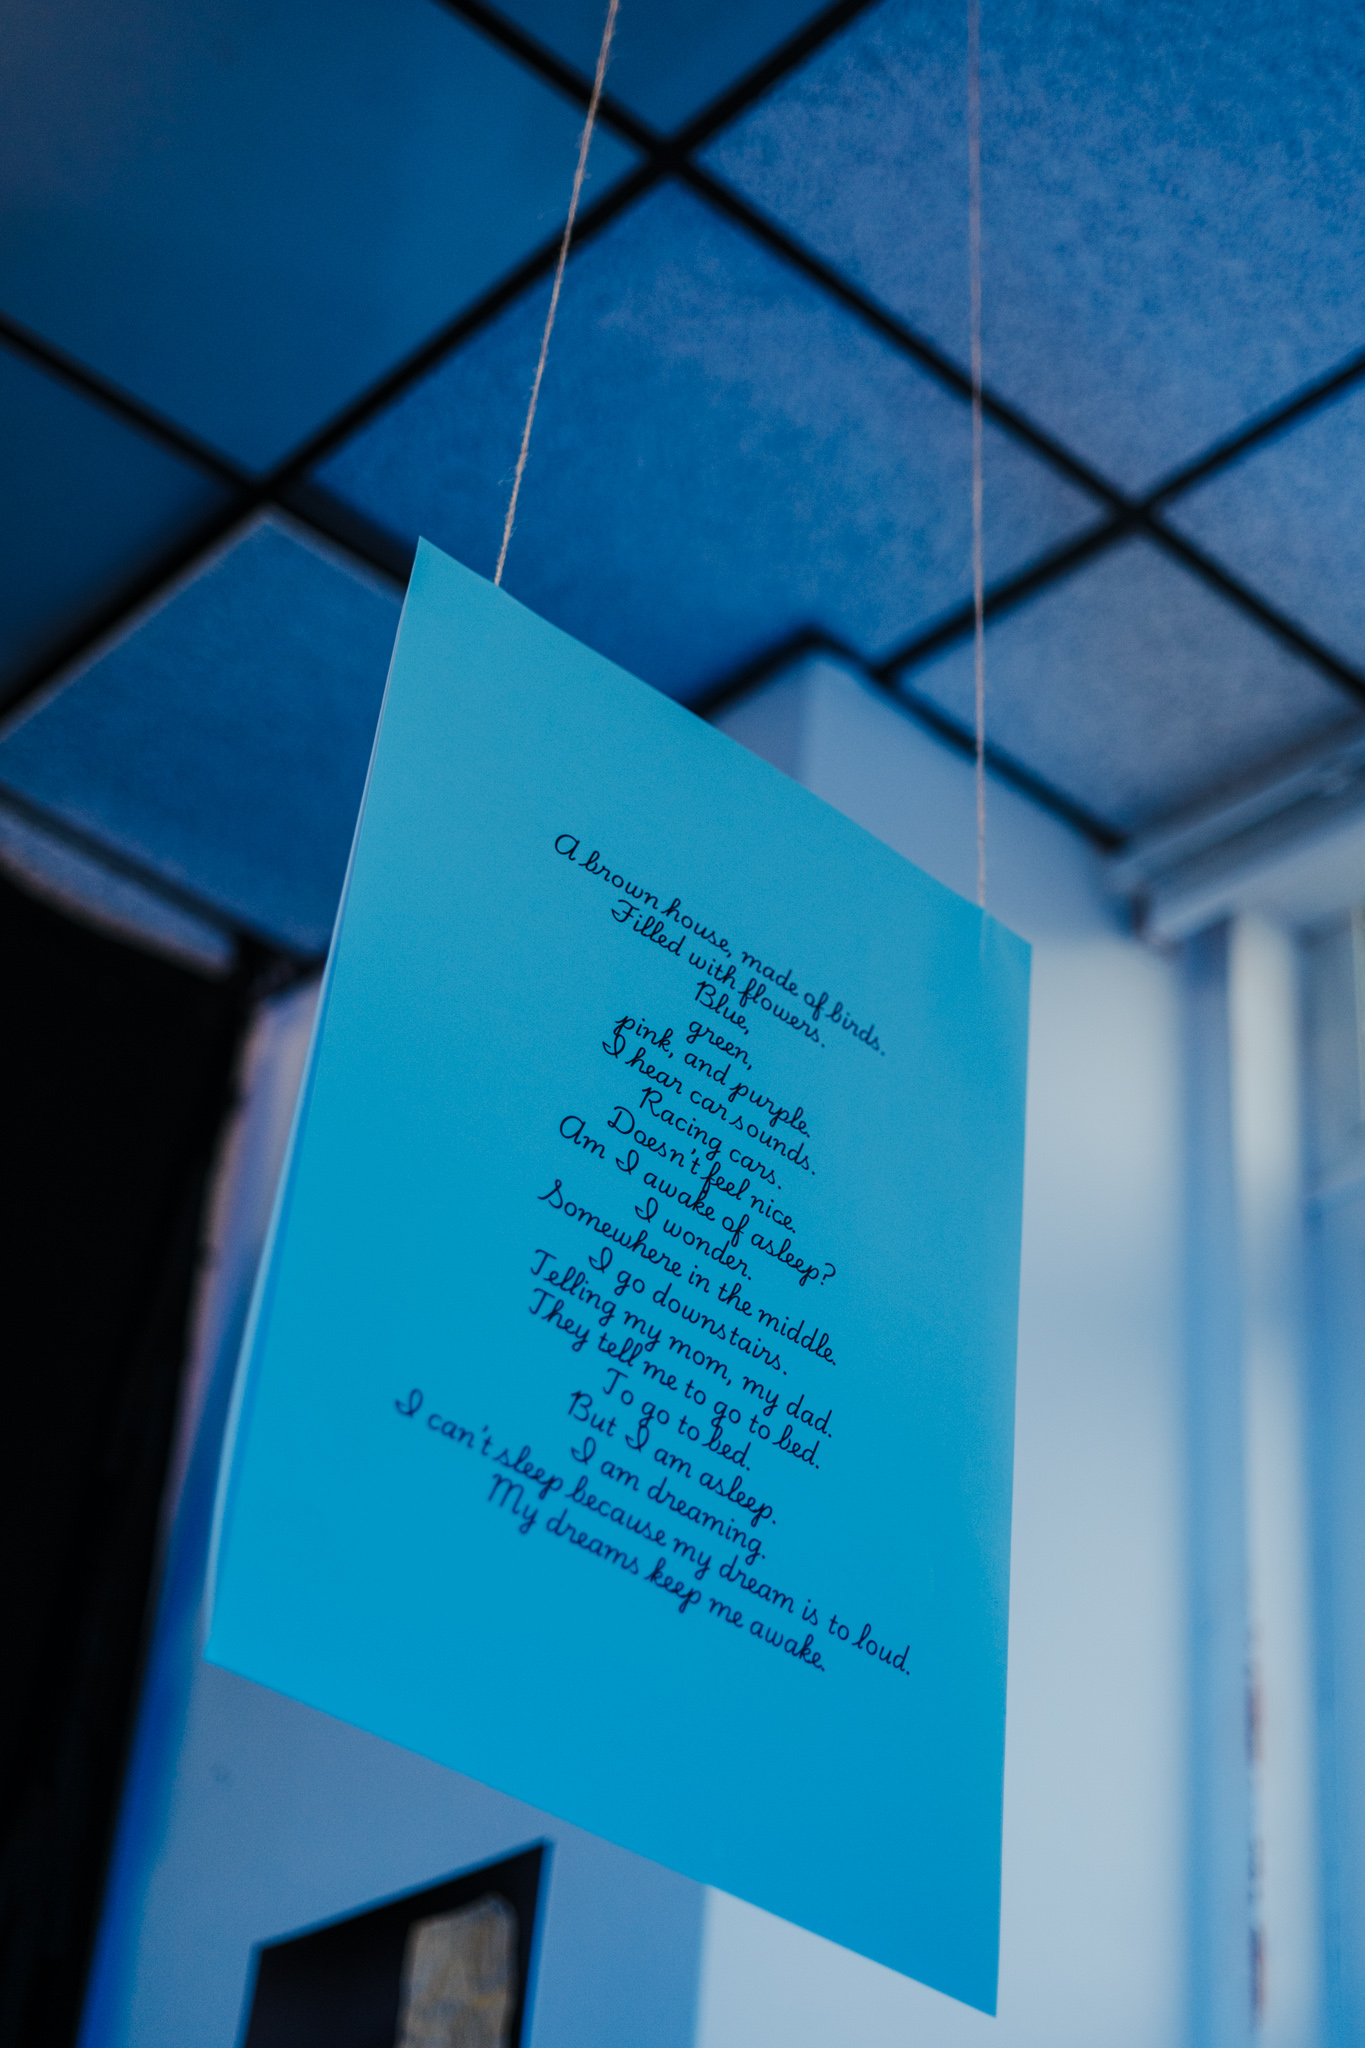 A brown house, made of birds.
Filled with flowers.
Blue,
green,
pink, and purple.
I hear car sounds.
Racing cars.
Doesn't feel nice.
Am I awake of asleep?
I wonder.
Somewhere in the middle.
I go downstairs.
Telling my mom, my dad.
They tell me to go to bed.
To go to bed.
But I am asleep.
I am dreaming.
I can't sleep because my dream is to loud.
My dreams keep me awake.